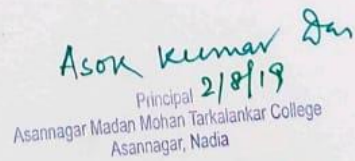 Asok Kumar Das
Principal 2/8/19
Asannagar Madan Mohan Tarkalankar College
Asannagar, Nadia